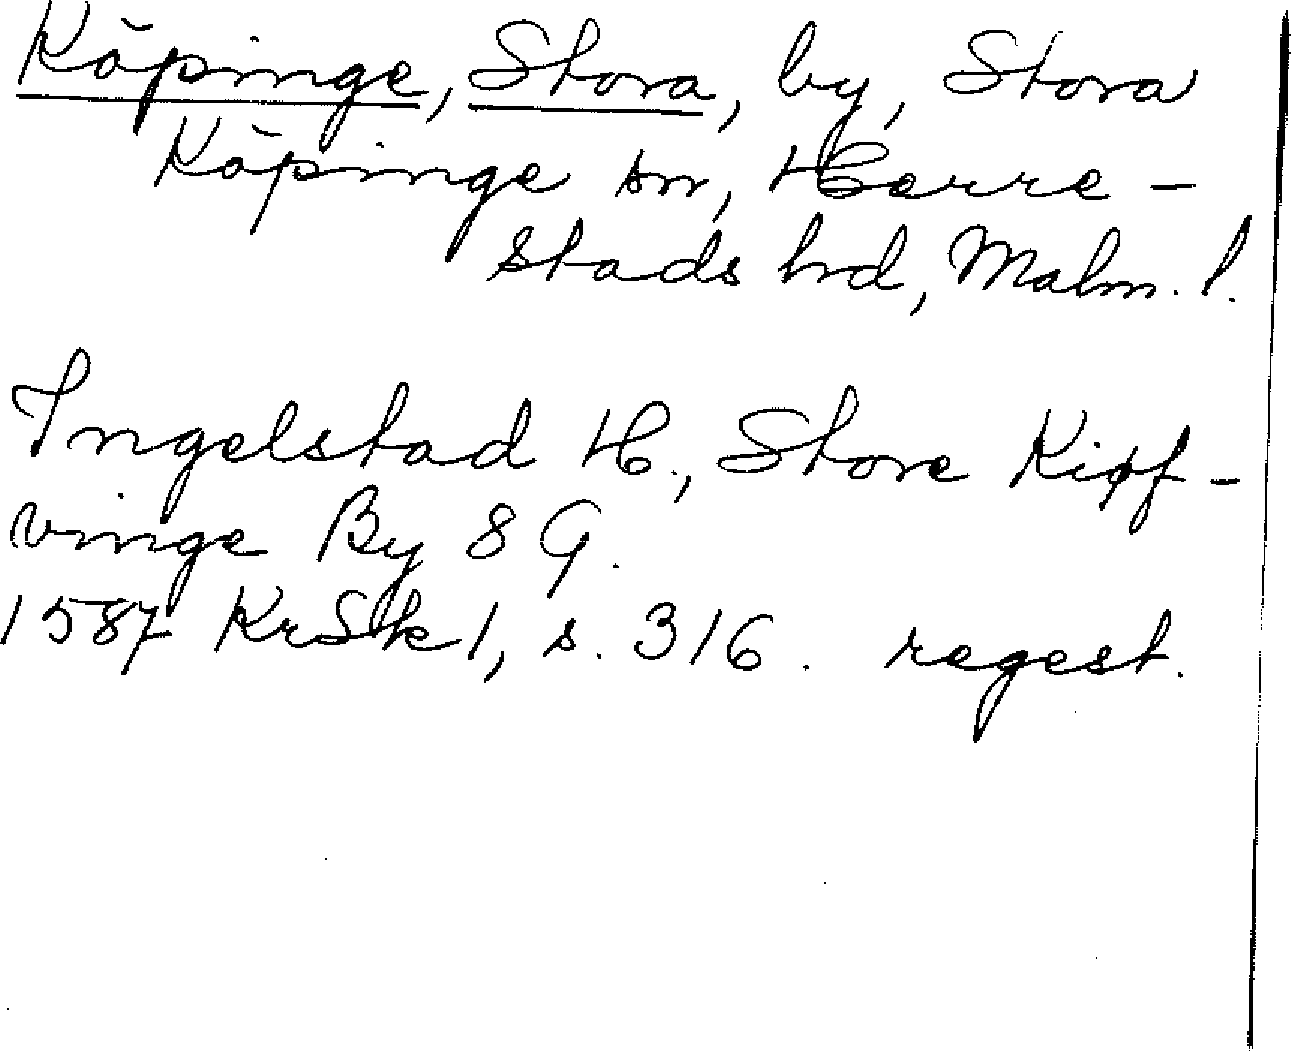 Köpinge, Stora, by, Stora
Köpinge sn, Herre-
stads hd, Malm. l.
Ingelstad H., Store Kiøf-
vinge By 8 G.
1587 KrSk 1, s. 316. regest.